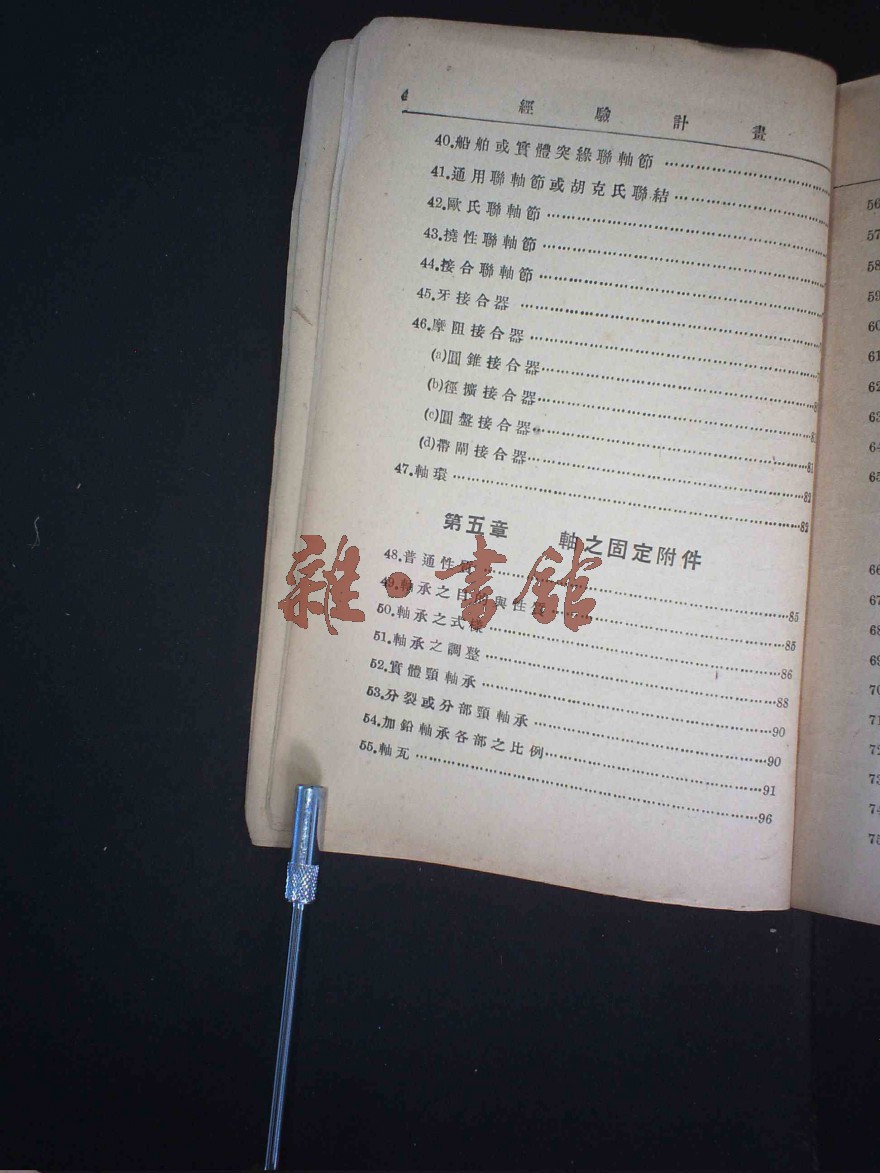 4 經驗計畫
40.船舶或實體突緣聯軸節
41.通用聯軸節或胡克氏聯結
42.歐氏聯軸節
43.撓性聯軸節
44.接合聯軸節
45.牙接合器
46.摩阻接合器
(a)圓錐接合器
(b)徑擴接合器
(c)圓盤接合器
(d)帶閘接合器 81
47.軸環 82
82
第五章 軸之固定附件
48.普通性 85
49.軸承之目的與性 85
50.軸承之式樣 86
51.軸承之調整 88
52.實體頸軸承 90
53.分裂或分部頸軸承 90
54.加鉛軸承各部之比例 91
55.軸瓦 96
雜·書館
56
57
58
59
60
61
62
63
64
65
66
67
68
69
70
71
72
73
74
75